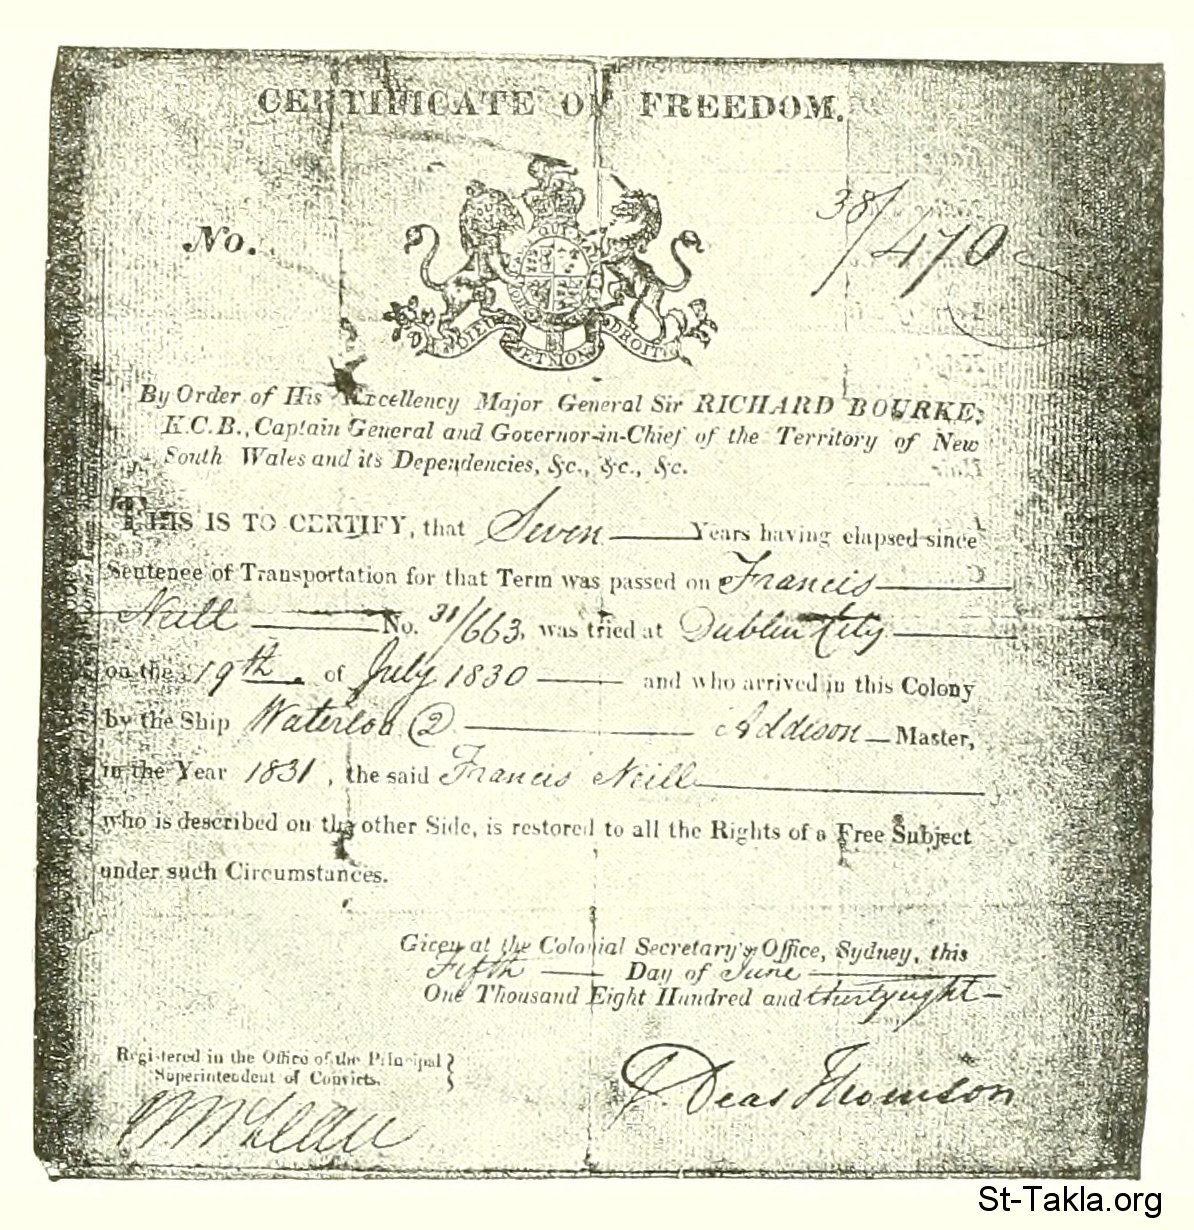 CERTIFICATE OF FREEDOM.
No. 38/470
DIEU ET MON DROIT
By Order of His Excellency Major General Sir RICHARD BOURKE,
K.C.B., Captain General and Governor-in-Chief of the Territory of New
South Wales and its Dependencies, &c., &c., &c.
THIS IS TO CERTIFY, that Seven Years having elapsed since
Sentence of Transportation for that Term was passed on Francis
Neill No. 31/663, was tried at Dublin City
on the 19th. of July 1830 and who arrived in this Colony
by the Ship Waterloo (2) Addison Master,
in the Year 1831, the said Francis Neill
who is described on the other Side, is restored to all the Rights of a Free Subject
under such Circumstances.
Given at the Colonial Secretary's Office, Sydney, this
Fifth Day of June
One Thousand Eight Hundred and thirty eight
Registered in the Office of the Principal
Superintendent of Convicts.
E. Deas Thomson
McLean
St-Takla.org